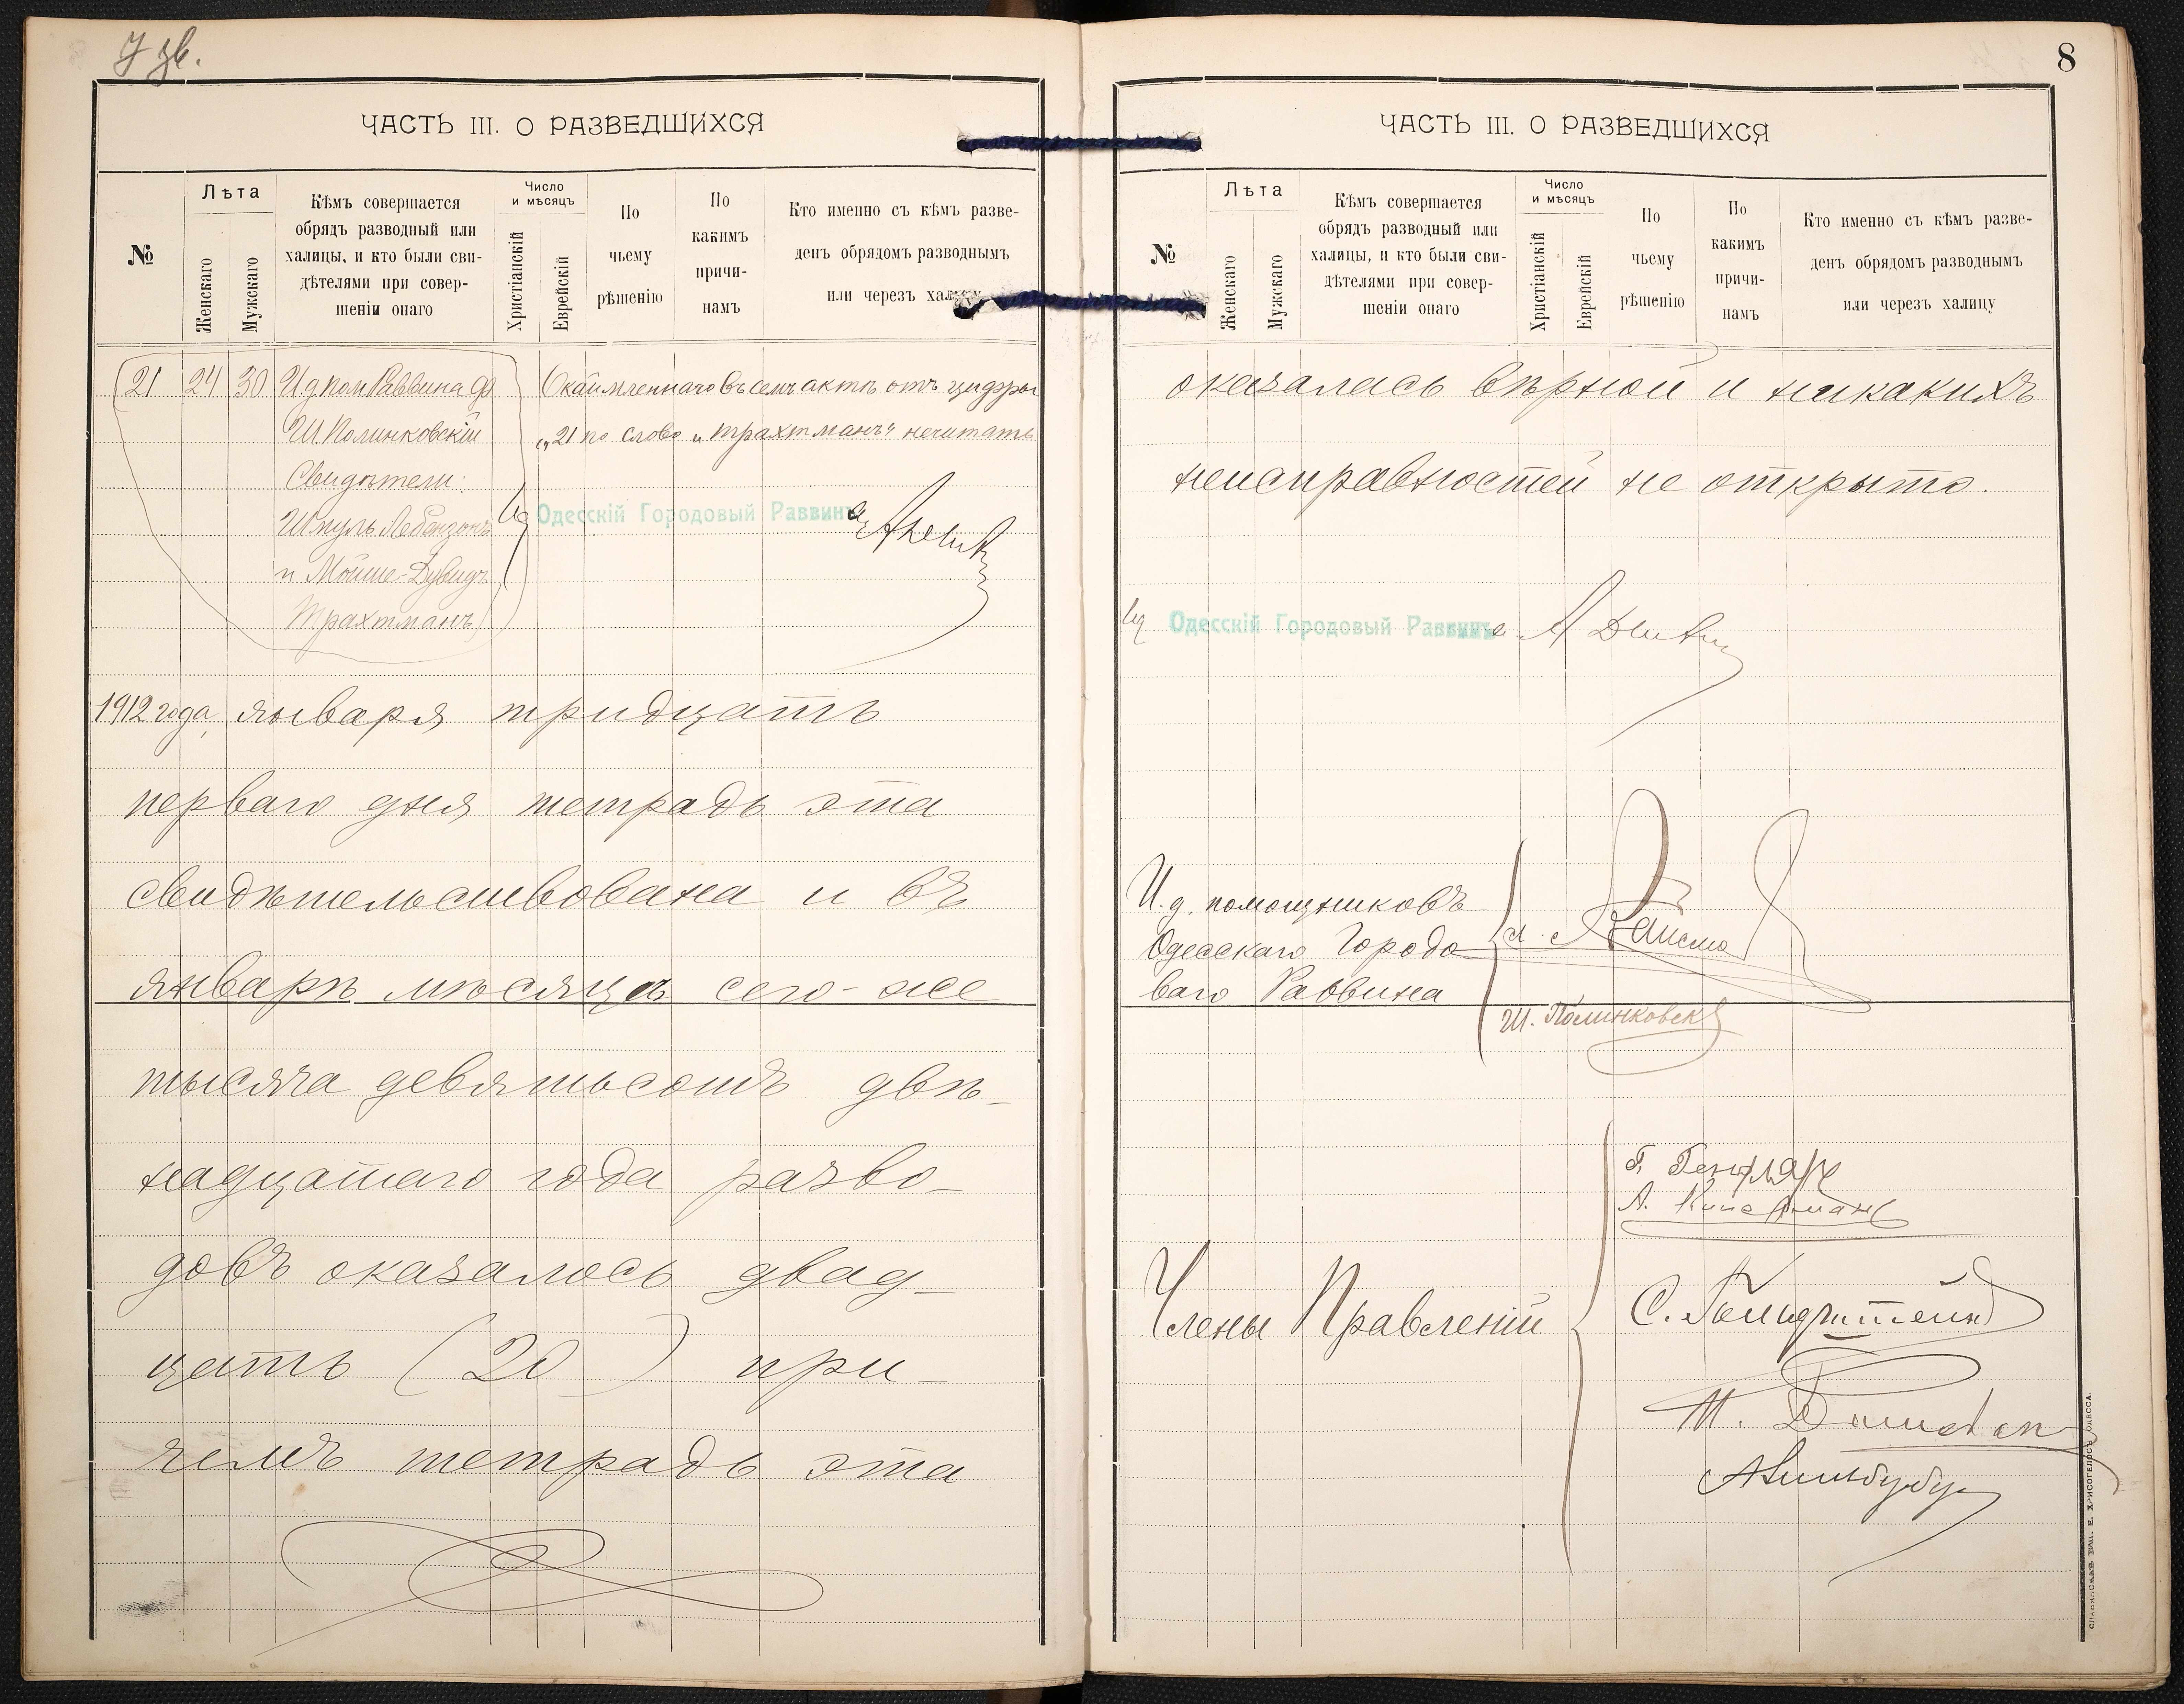 7 зв.
ЧАСТЬ III. О РАЗВЕДШИХСЯ
№
Лѣта
Женскаго
Мужскаго
Кѣмъ совершается
обрядъ разводный или
халицы, и кто были сви-
дѣтелями при совер-
шеніи онаго
Число
и мѣсяцъ
Христіанскій
Еврейскій
По
чьему
рѣшенію
По
какимъ
причи-
намъ
Кто именно съ кѣмъ разве-
денъ обрядомъ разводнымъ
или черезъ халицу
21 24 30 И д пом Раввина
Ш Полинковскій
Свидѣтели:
Шмуль Лебензонъ
и Мойше-Дувидъ
Трахтманъ
Окаймленнаго въ семъ актѣ отъ цифры
„21 по слово „Трахтманъ" нечитать
Одесскій Городовый Раввинъ
1912 года, января тридцать
перваго дня тетрадь эта
свидѣтельствована и въ
январѣ мѣсяцѣ сего-же
тысяча девятьсотъ двѣ-
надцатаго года разво-
довъ оказалось двад-
цать (20) при-
чемъ тетрадь эта
8
ЧАСТЬ III. О РАЗВЕДШИХСЯ
№
Лѣта
Женскаго
Мужскаго
Кѣмъ совершается
обрядъ разводный или
халицы, и кто были сви-
дѣтелями при совер-
шеніи онаго
Число
и мѣсяцъ
Христіанскій
Еврейскій
По
чьему
рѣшенію
По
какимъ
причи-
намъ
Кто именно съ кѣмъ разве-
денъ обрядомъ разводнымъ
или черезъ халицу
оказалась вѣрной и никакихъ
неисправностей не открыто.
Ид Одесскій Городовый Раввина
И. д. помощниковъ
Одесскаго Городо
ваго Раввина
Ш. Полинковск
Члены Правленій
Г.
А.
С. Гольдштейн
СЛАВЯНСКАЯ ТИП. Е. ХРИСОГЕЛОСЪ ОДЕССА.